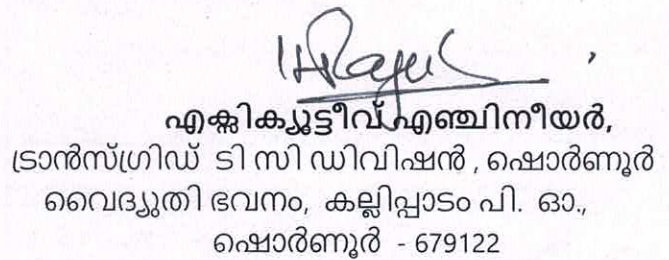 എക്സിക്യൂട്ടീവ് എഞ്ചിനീയർ,
ട്രാൻസ്ഗ്രിഡ് ടി സി ഡിവിഷൻ , ഷൊർണൂർ
വൈദ്യുതി ഭവനം, കല്ലിപ്പാടം പി. ഓ.,
ഷൊർണൂർ - 679122